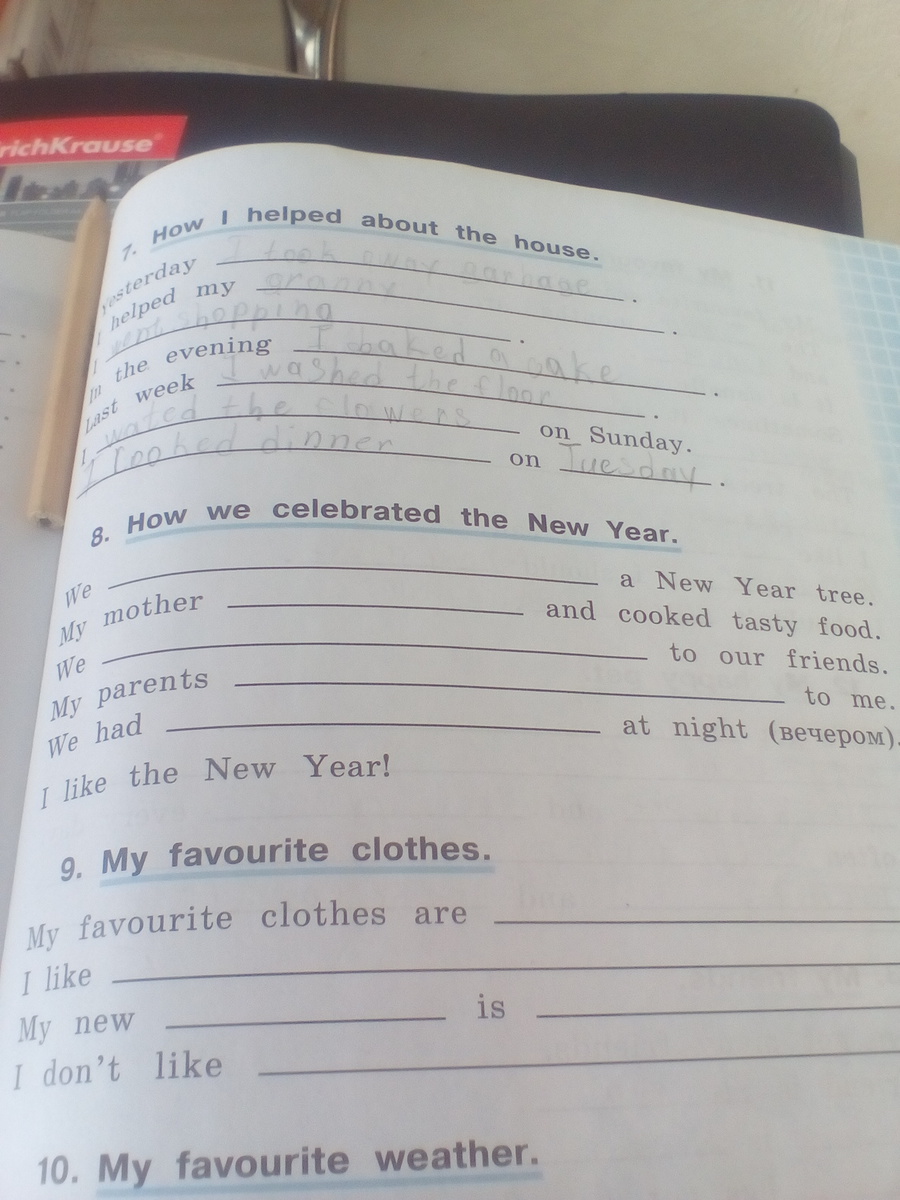 richKrause®
7. How I helped about the house.
Yesterday I took away garbage.
I helped my granny.
I went shopping.
In the evening I baked a cake.
Last week I washed the floor.
I wated the flowers on Sunday.
I cooked dinner on Tuesday.
8. How we celebrated the New Year.
We ____ a New Year tree.
My mother ____ and cooked tasty food.
We ____ to our friends.
My parents ____ to me.
We had ____ at night (вечером).
I like the New Year!
9. My favourite clothes.
My favourite clothes are ____
I like ____
My new ____ is ____
I don't like ____
10. My favourite weather.